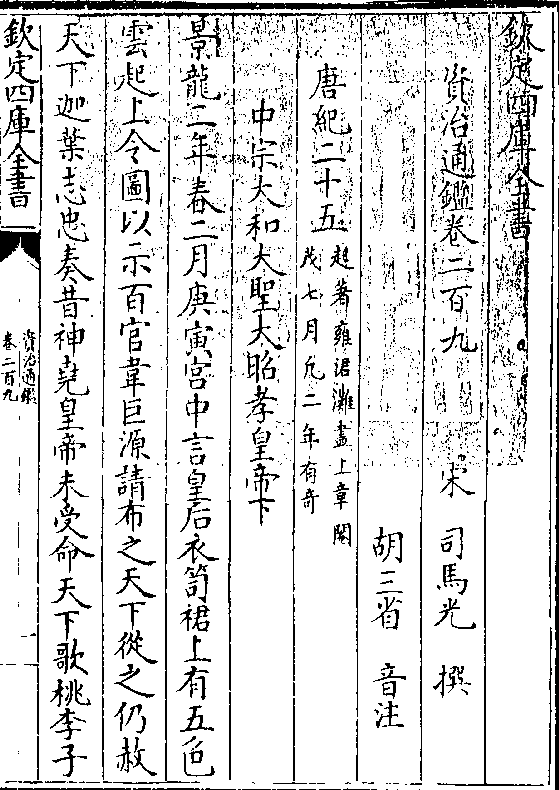 欽定四庫全書
資治通鑑卷二百九
宋 司馬光 撰
胡三省 音注
唐紀二十五起著雍涒灘盡上章閹
茂七月凡二年有奇
中宗大和大聖大昭孝皇帝下
景龍二年春二月庚寅宮中言皇后衣笥裙上有五色
雲起上令圖以示百官韋巨源請布之天下從之仍赦
天下迦葉志忠奏昔神堯皇帝未受命天下歌桃李子
欽定四庫全書
資治通鑑
卷二百九
一